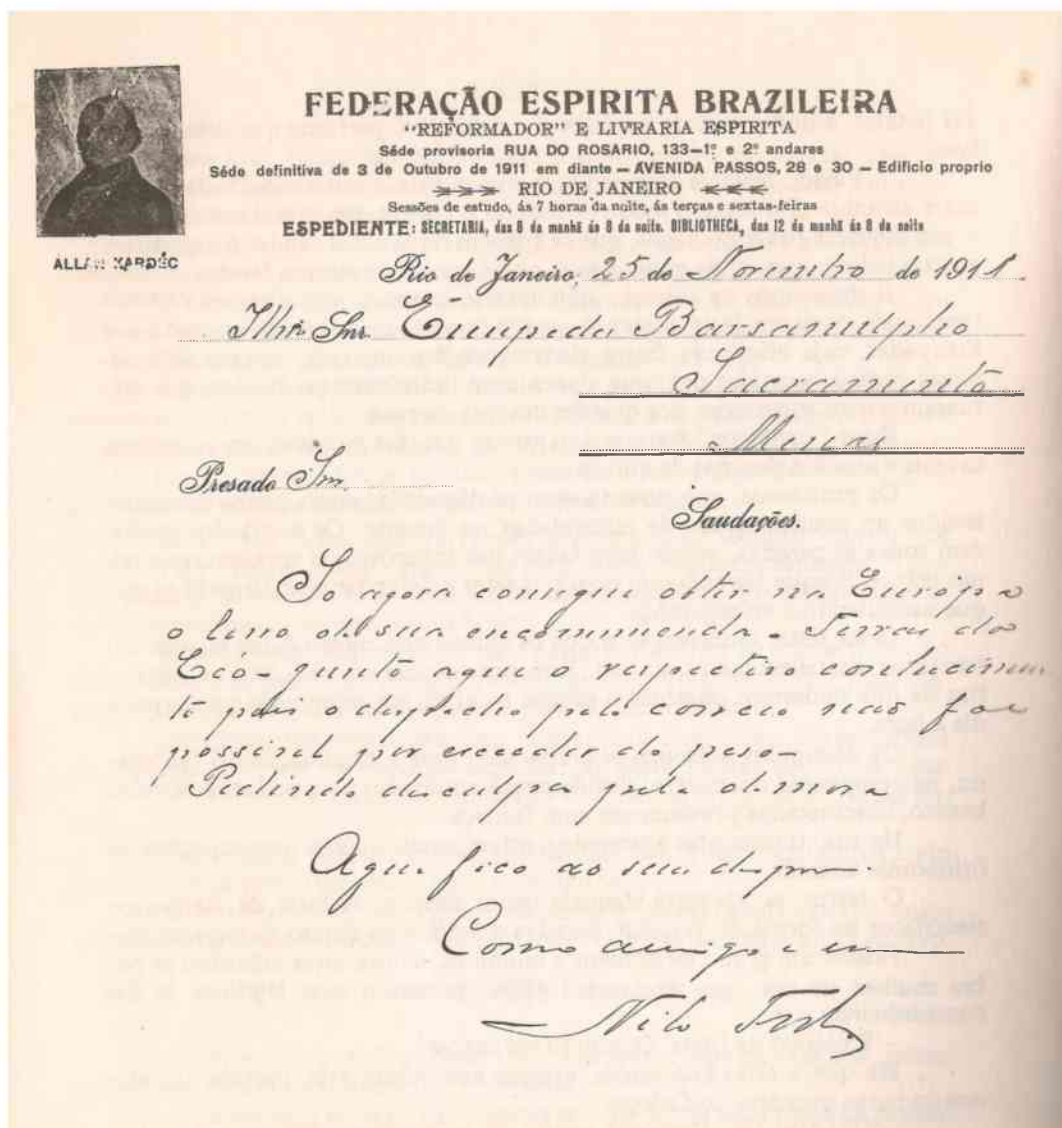 FEDERAÇÃO ESPIRITA BRAZILEIRA
"REFORMADOR" E LIVRARIA ESPIRITA
Séde provisoria RUA DO ROSARIO, 133—1º e 2º andares
Séde definitiva de 3 de Outubro de 1911 em diante — AVENIDA PASSOS, 28 e 30 — Edificio proprio
RIO DE JANEIRO
Sessões de estudo, ás 7 horas da noite, ás terças e sextas-feiras
ESPEDIENTE: SECRETARIA, das 8 da manhã ás 8 da noite. BIBLIOTHECA, das 12 da manhã ás 8 da noite
ALLAN KARDÉC
Rio de Janeiro, 25 de Novembro de 1911.
Illmo. Snr. Euripedes Barsanulpho
Sacramento
Minas
Presado Snr.
Saudações.
So agora consegui obter na Európa
o livro de sua encommenda - Terras do
Céo - junto aqui o respectivo conhecimen
to pois o despacho pelo correio nao foi
possivel por exceder do peso -
Pedindo desculpa pela demora
Aqui fico ao seu dispor.
Como amigo e
Nilo